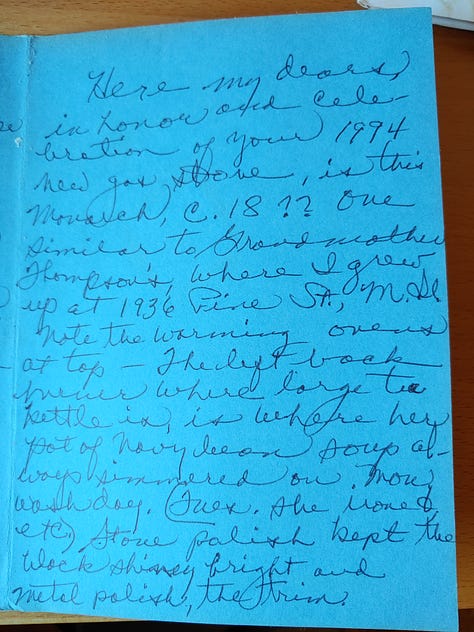 Here my dears,
in honor and cele-
bration of your 1994
new gas stove, is this
Monarch, c. 18 ?? One
similar to Grandmother
Thompson's, where I grew
up at 1936 Pine St.,
Note the warming ovens
at top - The left back
burner where large tea
kettle is, is where her
pot of navy bean soup al-
ways simmered on Mon.
wash day. (Tues. she ironed,
etc) Stove polish kept the
black shiney bright and
metal polish, the trim.